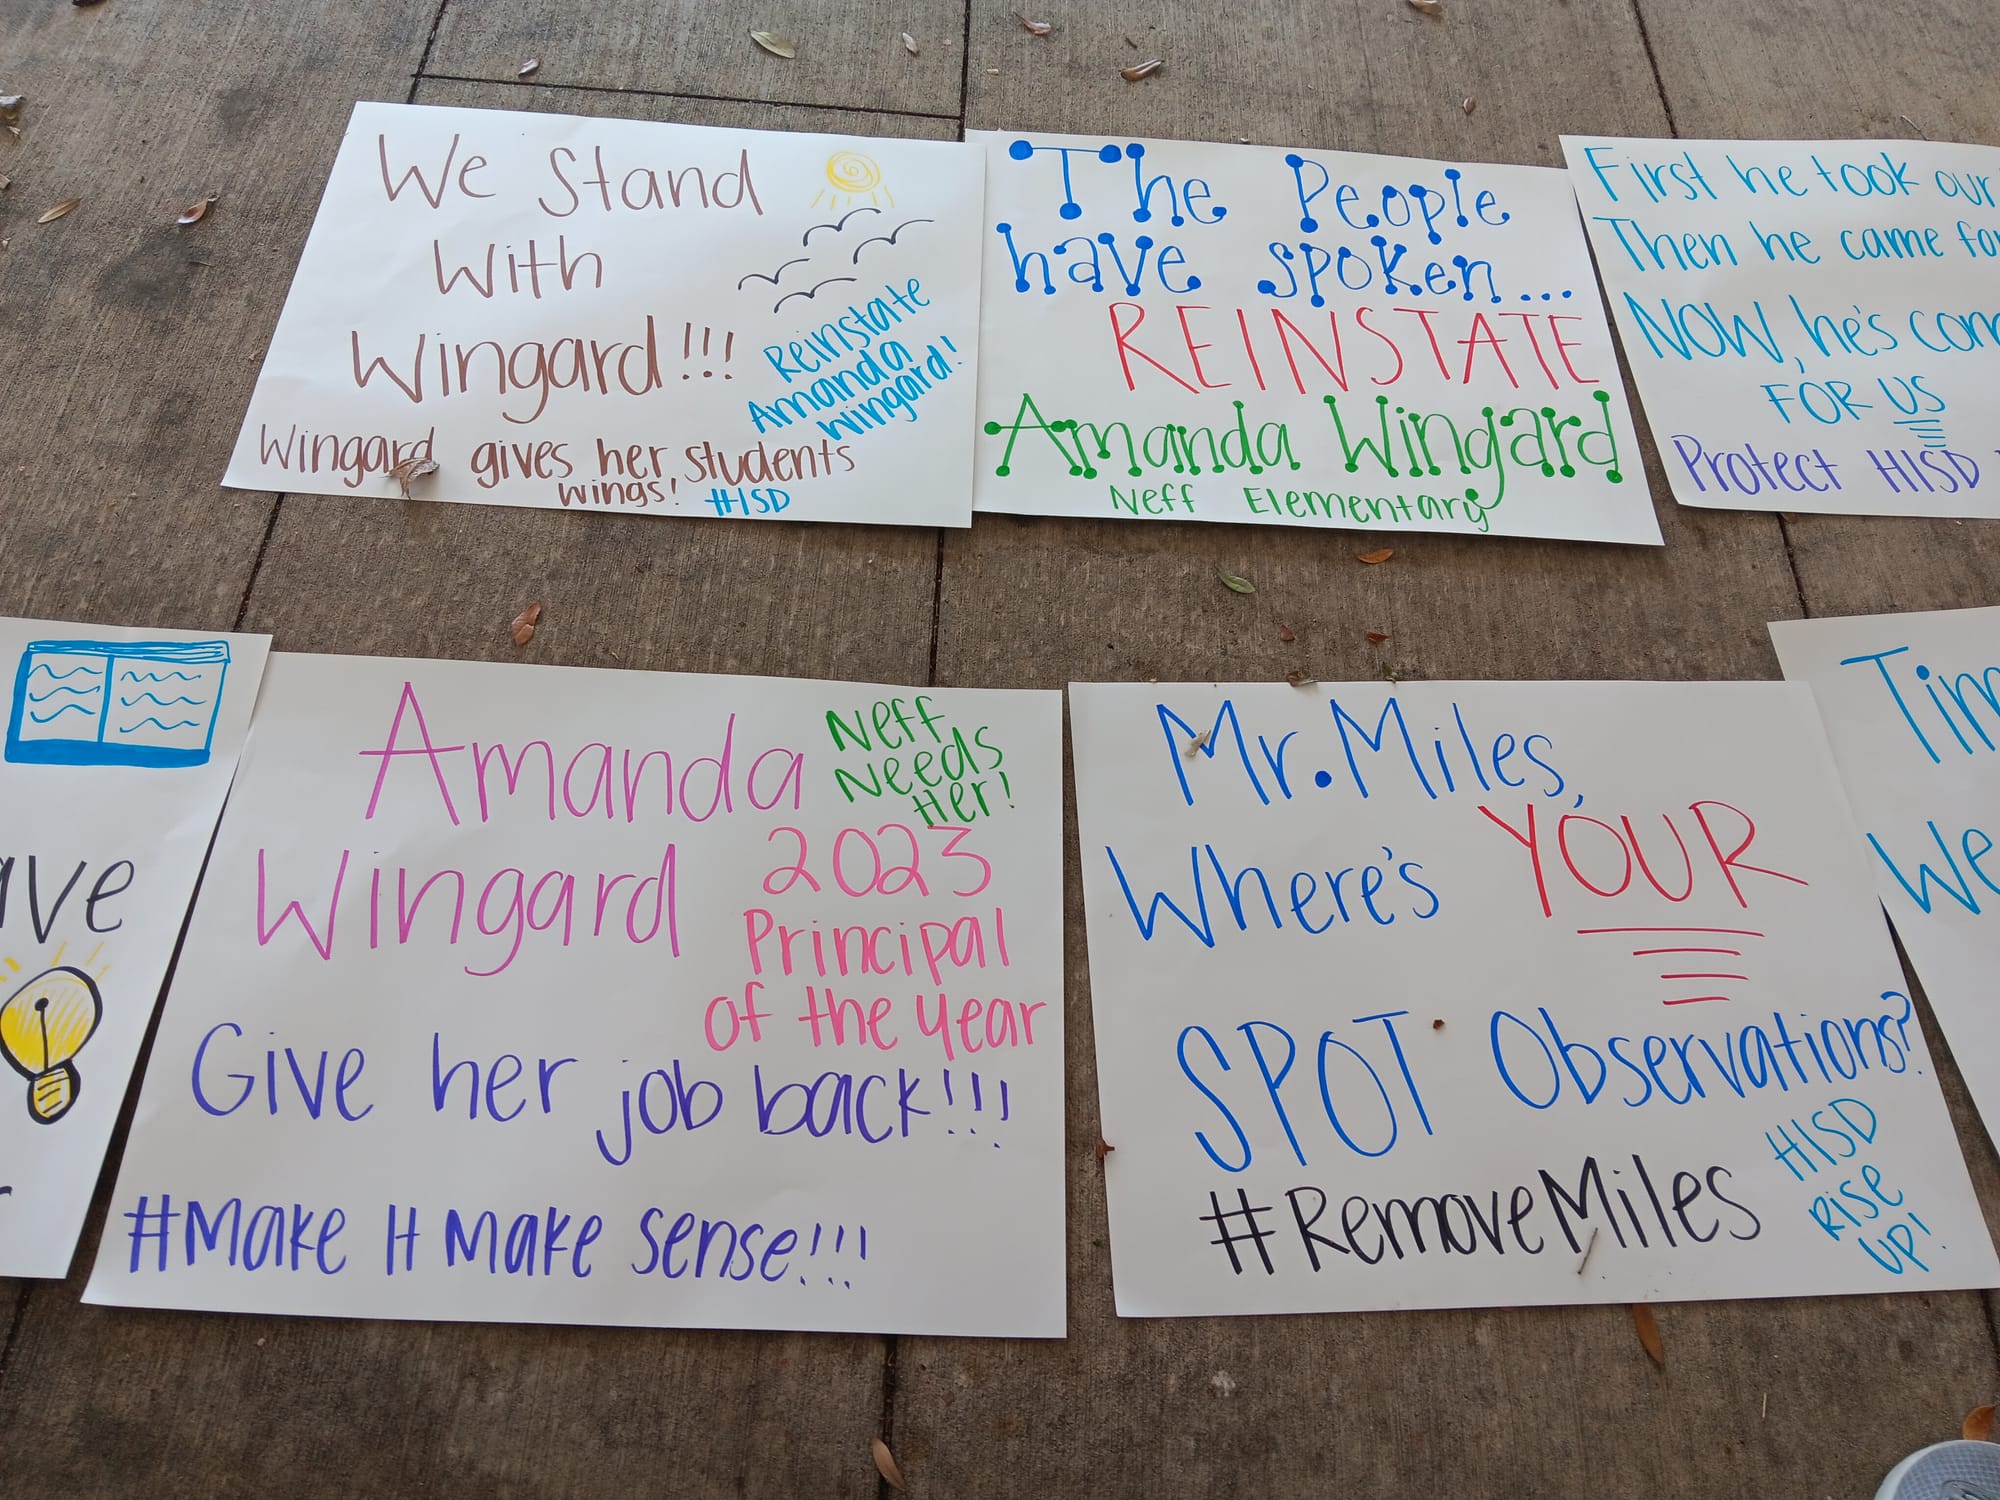 We Stand
With
Wingard!!!
Reinstate
Amanda
Wingard!
Wingard gives her students
wings! HISD
The People
have spoken...
REINSTATE
Amanda Wingard
Neff Elementary
First he took our
Then he came for
NOW, he's
FOR US
Protect HISD
ave
Amanda
Wingard
Neff
Needs
Her!
2023
Principal
of the year
Give her job back!!!
#Make H Make Sense!!!
Mr. Miles,
Where's YOUR
SPOT Observations?
#RemoveMiles
HISD
RISE
UP!
We